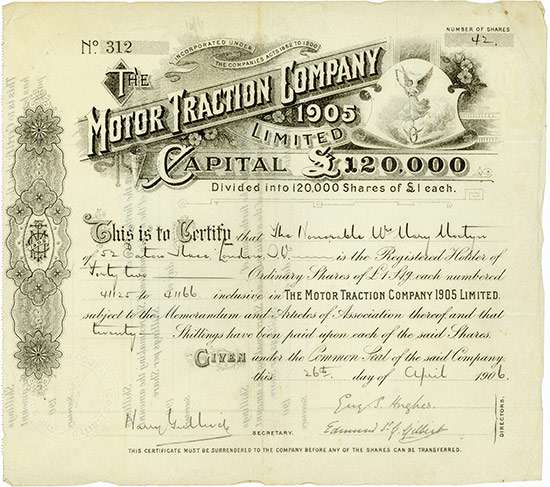 NUMBER OF SHARES
42.
No. 312
INCORPORATED UNDER
THE COMPANIES ACTS 1862 TO 1900
THE
MOTOR TRACTION COMPANY
1905
LIMITED
CAPITAL £120,000
Divided into 120,000 Shares of £1 each.
This is to Certify that The Honorable Mrs Mary
of 52 Eaton Place London is the Registered Holder of
Forty two Ordinary Shares of £1 Stg each numbered
41125 to 41166 inclusive in THE MOTOR TRACTION COMPANY 1905 LIMITED.
subject to the Memorandum and Articles of Association thereof and that
twenty Shillings have been paid upon each of the said Shares.
GIVEN under the Common Seal of the said Company,
this 26th day of April 1906.
Eug. P. Hughes.
Harry Edmund D. J. Gilbert
SECRETARY.
DIRECTORS.
THIS CERTIFICATE MUST BE SURRENDERED TO THE COMPANY BEFORE ANY OF THE SHARES CAN BE TRANSFERRED.